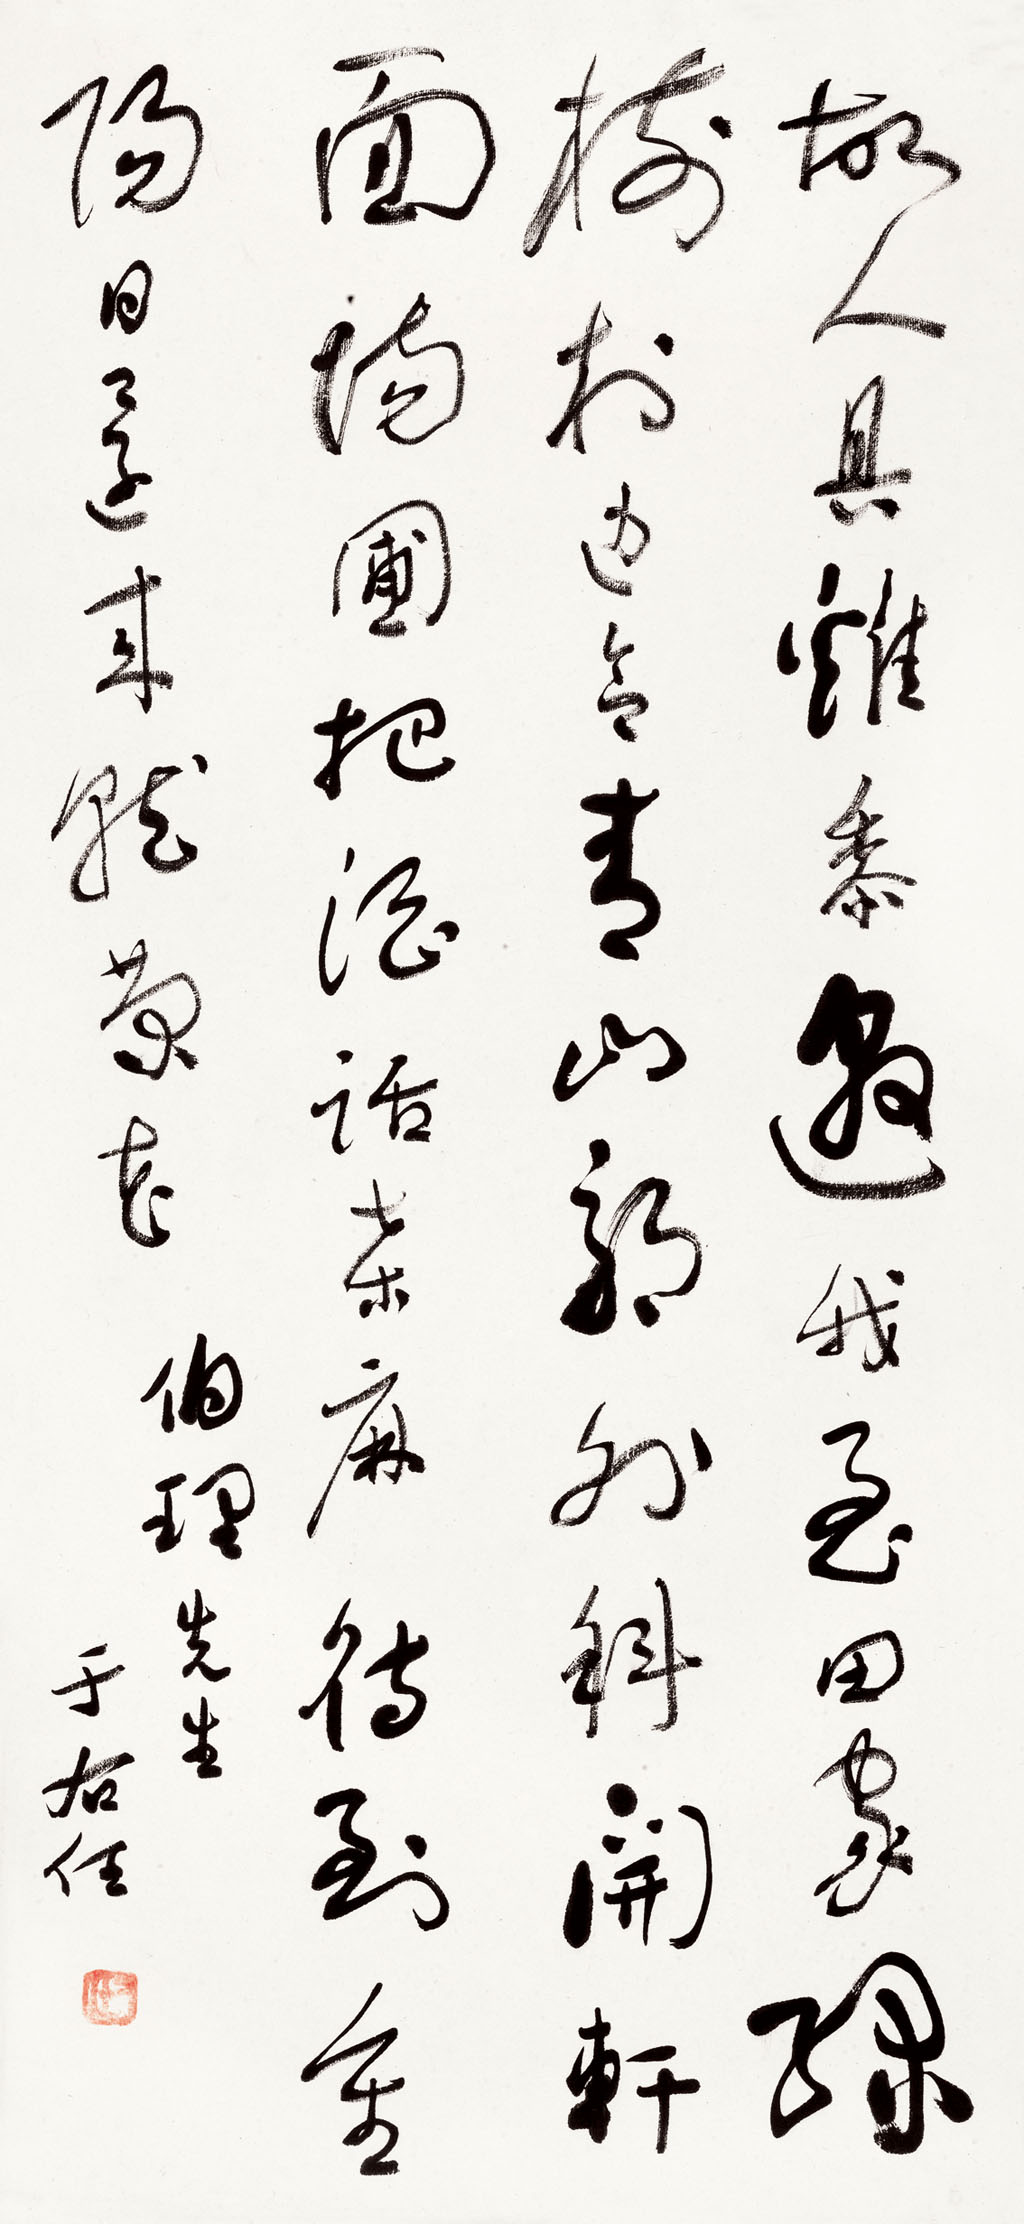 故人具雞黍邀我至田家綠
樹村邊合青山郭外斜開軒
面場圃把酒話桑麻待到重
陽日還來就菊花
伯理先生
于右任